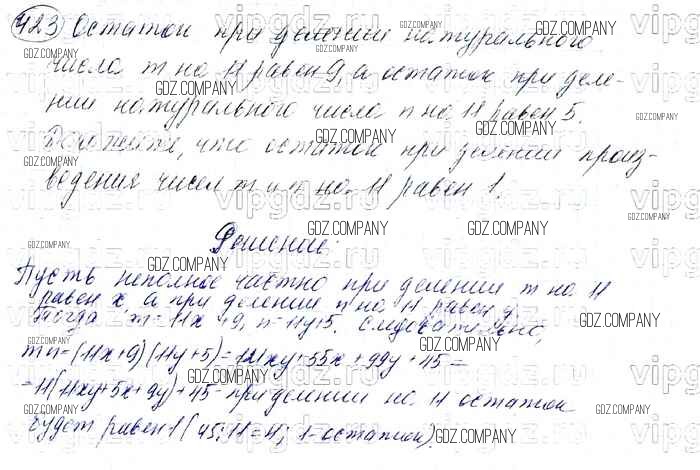 423 Остаток при делении натурального
числа m на 11 равен 9, а остаток при деле-
нии натурального числа n на 11 равен 5.
Докажите, что остаток при делении произ-
ведения чисел m и n на 11 равен 1.
Решение:
Пусть неполное частно при делении m на 11
равен x, а при делении n на 11 равен y.
Тогда m=11x+9, n=11y+5. Следовательно,
mn=(11x+9)(11y+5)=121xy+55x+99y+45=
=11(11xy+5x+9y)+45 - при делении на 11 остаток
будет равен 1 (45:11=4; 1-остаток).
GDZ.COMPANY
vipgdz.ru